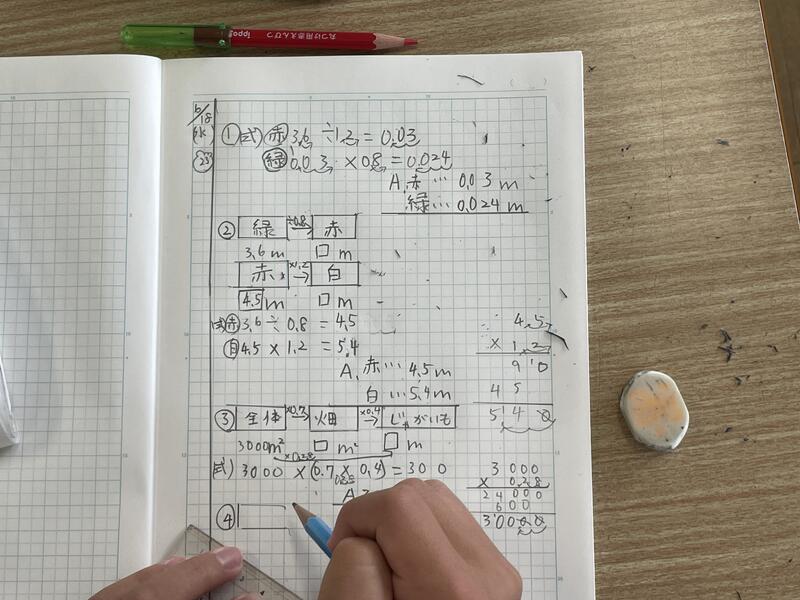 丸つけ用赤えんぴつ ippo!
6/18
(水)
① 式) 赤 3.6 ÷ 1.2 = 0.03
緑 0.03 × 0.8 = 0.024
A. 赤… 0.03m
緑… 0.024m
② 緑 ÷0.8→ 赤
3.6m □m
赤 ×1.2→ 白
4.5m □m
式) 赤 3.6 ÷ 0.8 = 4.5
白 4.5 × 1.2 = 5.4
A. 赤… 4.5m
白… 5.4m
4.5
× 1.2
9 0
4 5
5 4 0
③ 全体 ×0.7→ 畑 ×0.4→ じゃがいも
3000m² □m² □m
×0.28
式) 3000 × (0.7 × 0.4) = 300
0.28
A
3000
× 0.28
24000
600
30000
④